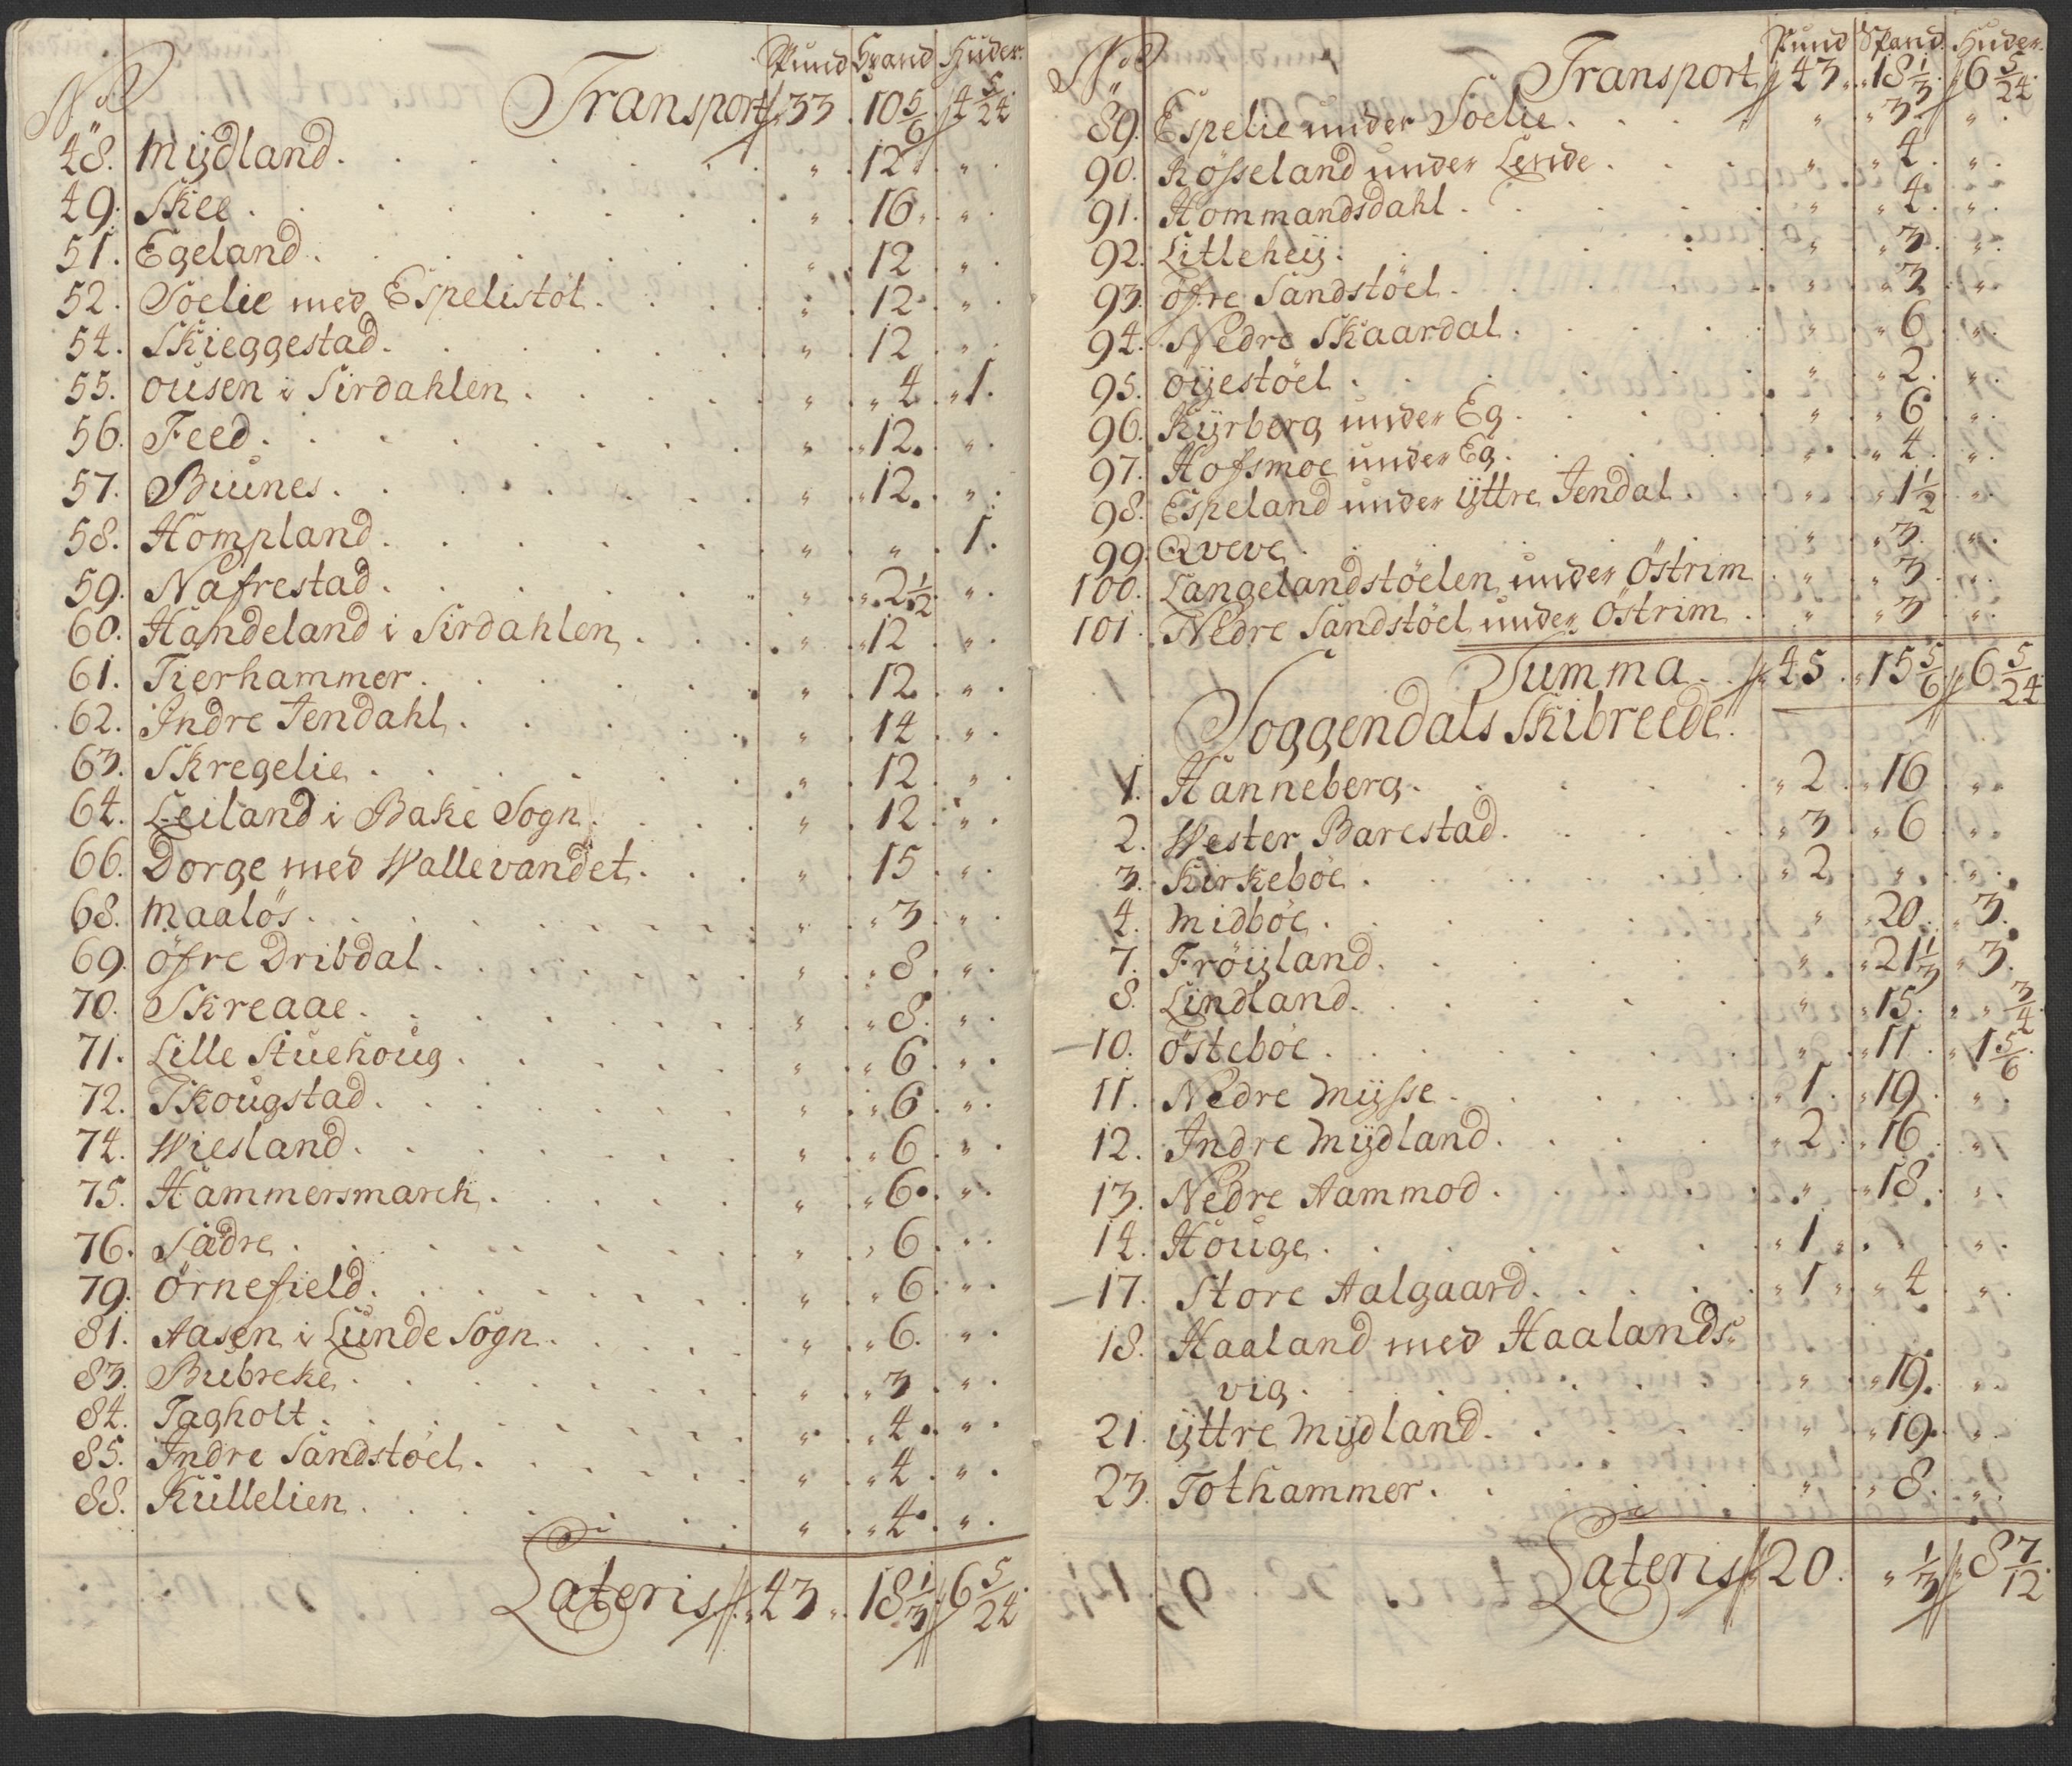 No Pund Spand Huder.
Transport 33 10 5/6 4 5/24
48. Mÿdland. " 12 "
49. Skee. " 16 "
51. Egeland. " 12 "
52. Soelie med Espelistöl. " 12 "
54. Skieggestad. " 12 "
55. Ousen i Sirdahlen. " 4 1.
56. Feed. " 12. "
57. Buunes. " 12. "
58. Hompland. " " 1.
59. Nafrestad. " 2 1/2 "
60. Handeland i Sirdahlen. " 12 "
61. Tierhammer. " 12 "
62. Indre Jendahl. " 14 "
63. Skregelie. " 12 "
64. Leiland i Bake Sogn. " 12 "
66. Dorge med Wallevandet. " 15 "
68. Maalös. " 3 "
69. Öfre Dribdal. " 8 "
70. Skreaae. " 8. "
71. Lille Stuehoug. " 6 "
72. Skougstad. " 6 "
74. Wiesland. " 6 "
75. Hammersmarch. " 6 "
76. Sädre. " 6 "
79. Örnefield. " 6 "
81. Aasen i Lunde Sogn. " 6. "
83. Bubreke. " 3 "
84. Tagholt. " 4 "
85. Indre Sandstöel. " 4 "
88. Kullelien. " 4 "
Lateris 43 18 1/3 6 5/24
No Pund Spand. Huder.
Transport 43 18 1/3 6 5/24
89. Espelie under Soelie. " 3 "
90. Rösseland under Lende. " 4 "
91. Hommandsdahl. " 4 "
92. Litleheÿ. " 3 "
93. Öfre Sandstöel. " 3 "
94. Nedre Skaardal. " 6 "
95. Öÿestöel. " 2 "
96. Kÿrberg under Eg. " 6 "
97. Hofsmoe under Eg. " 4 "
98. Espeland under ÿttre Jendal. " 1 1/2 "
99. Qveve. " 3 "
100. Langelandstöelen under Östrim " 3 "
101. Nedre Sandstöel under Östrim. " 3 "
Summa 45 15 5/6 6 5/24
Soggendals Skibreede.
1. Hanneberg. 2 16 "
2. Wester Barestad. 3 6 "
3. Kirkeböe. 2 " "
4. Midböe. " 20 3.
7. Fröÿland. " 21 1/3 3.
8. Lindland. " 15. 3/4
10. Östeböe. " 11 1 5/6
11. Nedre Mÿsse. 1 19 "
12. Indre Mÿdland. 2 16 "
13. Nedre Aammod. " 18. "
14. Houge. 1 " "
17. Store Aalgaard. 1 4 "
18. Haaland med Haalands:
vig. " 19. "
21. Ÿttre Mÿdland. " 19. "
23. Tothammer. " 8. "
Lateris 20. 1/3 8 7/12